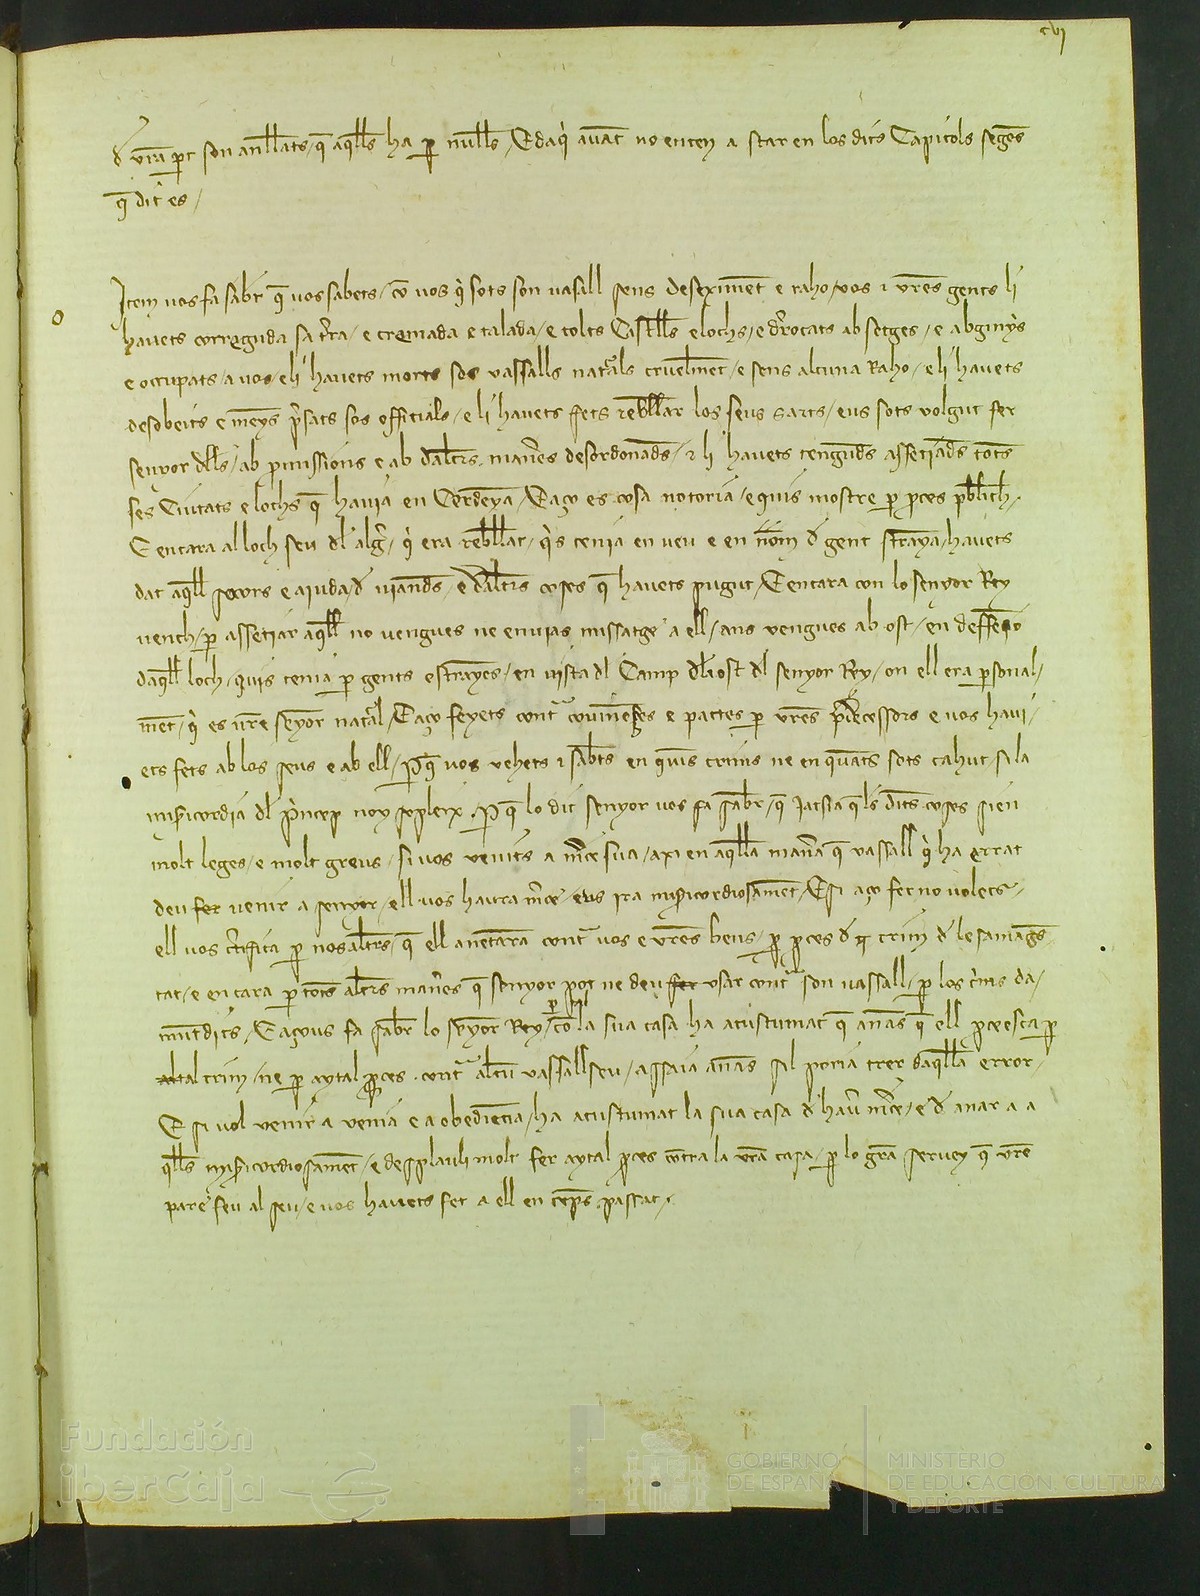 cvi
d vr̃a p̱t son anl̃lats / q̃ aq̃lls ha p̱ nul̃ls / E daq̓ auãt no enten a star en los dits Capitols segõs
q̃ dit es /
Item vos fa sab̃r q̃ vos sabets / cõ vos q̓ sots son vasall sens deseximẽt e raho / vos ⁊ vr̃es gents li
hauets correguda sa tr̃ra / e cremada e talada / e tolts Castel̃ls e lochs / e dr̃rocats ab setges / e ab ginỹs
e occupats / a vos / e li hauets morts sos vassalls natal̃s cruelmẽt / e sens alcuna Raho / e li hauets
desobeits e mẽys pr̃sats sos officials / e li hauets fets reb̃l̃lar los seus sarts / eus sots volgut fer
senyor dl̃ls / ab p̱missions e ab dal̃trs manr̃es desordonads / ⁊ li hauets tenguds assetiads tots
ses Ciutats e lochs q̃ hauia en Cerdeỹa / E aço es cosa notoria / e quis mostre p̱ p̱ces pub̃lich /
E encara al loch seu dl̃ alg̃r / q̓ era reb̃l̃lat / q̓s tenia en veu e en nõm d̃ gent strãya / hauets
dat aq̃ll secors e aiuda / d̃ viands / e dal̃trs coses q̃ hauets pugut / E encara con lo senyor Rey
vench / p̱ assetiar aq̃ll no vengues ne enuias missatge a ell / ans vengues ab ost / en deffẽsio
daq̃ll loch / quis tenia p̱ gents estrãyes / en vista dl̃ Camp dl̃ ost dl̃ senyor Rey / on ell era p̱sonal-
mẽt / q̓ es vr̃e seỹor natal̃ / E aço feyets cont̃ couinẽses e pactes p̱ vr̃es p̱decessors e vos haui-
ets fets ab los seus e ab ell / P̱q̃ vos vehets ⁊ sab̃ts en quis crims ne en quãts sots cahut / si la
mis̃icordia dl̃ pr̃incep noy sopleix / P̱ q̃ lo dit senyor vos fa sab̃r / q̃ Jatsia q̃ls dits coses sien
molt leges / e molt greus / si vos venits a mr̃ce sua / axi en aq̃lla manr̃a q̃ vassall q̓ ha errat
deu fer venir a senyor / ell vos haura mr̃ce / eus ira mis̃icordiosamẽt / E si aço fer no volets /
ell vos cr̃tifica p̱ nos altr̃s / q̃ ell anẽtara cont̃ vos e vr̃es bens / p̱ p̱ces d̃ crim d̃ lesamags-
tat / e encara p̱ tots altr̃s manr̃es q̃ senyor pot ne deu fer vsar cont̃ son vassall / p̱ los cr̃ims da-
mũt dits / E açous fa sab̃r lo seỹor Rey / p̱ cõ la sua casa ha acustumat q̃ anãs q̃ ell p̱ceesca p̱
altal crim / ne p̱ aytal p̱ces cont̃ alcũ vassall seu / assaia anãs sil poria trer daq̃lla error /
E si vol venir a venia e a obediẽcia / ha acustumat la sua casa d̃ hauẽr mr̃ce / e d̃ anar a a
q̃lls mis̃icordiosamẽt / e desplauli molt fer aytal p̱ces cõtra la vr̃a casa / p̱ lo grã seruey q̃ vr̃e
pare feu al seu / e vos hauets fet a ell en tẽps passat /
Fundación
iberCaja
GOBIERNO
DE ESPAÑA
MINISTERIO
DE EDUCACIÓN, CULTURA
Y DEPORTE